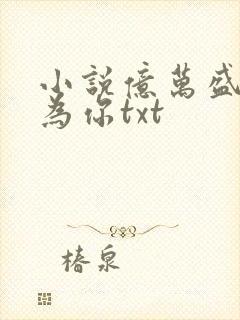 小說億萬盛
為你txt
椿泉